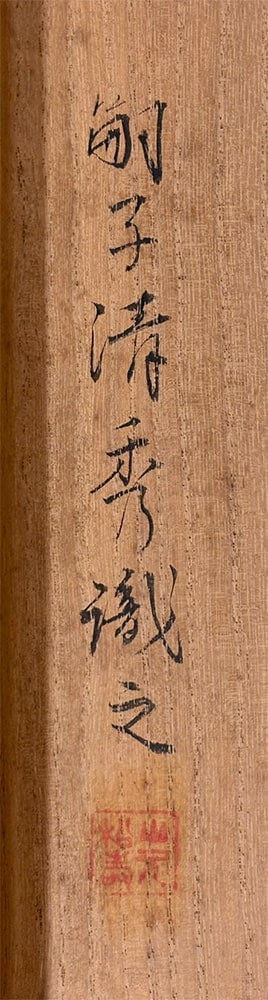 嗣子清秀識之